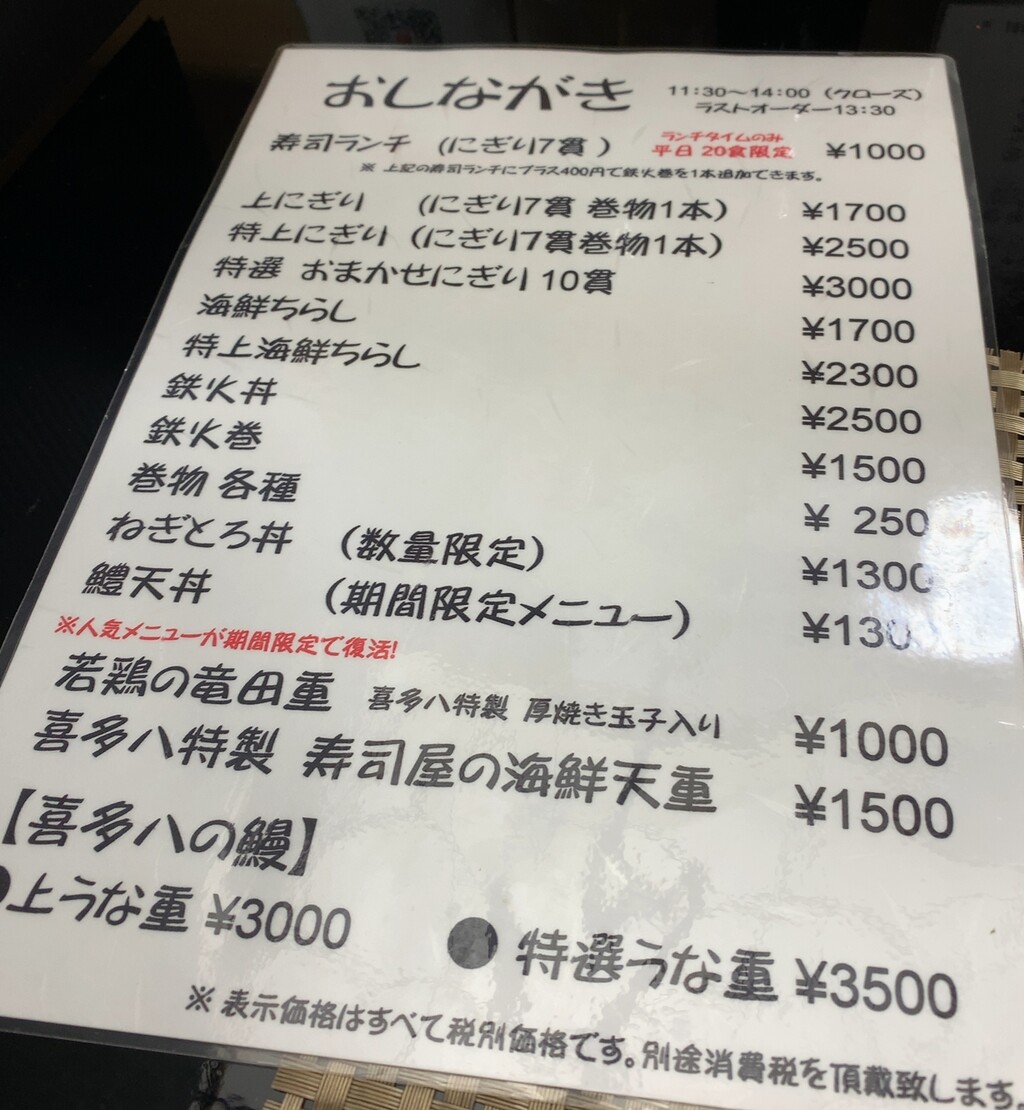 おしながき 11:30～14:00（クローズ）
ラストオーダー13:30
寿司ランチ （にぎり7貫） ランチタイムのみ 平日20食限定 ¥1000
※ 上記の寿司ランチにプラス400円で鉄火巻を1本追加できます。
上にぎり （にぎり7貫 巻物1本） ¥1700
特上にぎり （にぎり7貫巻物1本） ¥2500
特選 おまかせにぎり 10貫 ¥3000
海鮮ちらし ¥1700
特上海鮮ちらし ¥2300
鉄火丼 ¥2500
鉄火巻 ¥1500
巻物 各種 ¥ 250
ねぎとろ丼 （数量限定） ¥1300
鱧天丼 （期間限定メニュー） ¥1300
※人気メニューが期間限定で復活!
若鶏の竜田重 喜多八特製 厚焼き玉子入り ¥1000
喜多八特製 寿司屋の海鮮天重 ¥1500
【喜多八の鰻】
●上うな重 ¥3000 ●特選うな重 ¥3500
※ 表示価格はすべて税別価格です。別途消費税を頂戴致します。